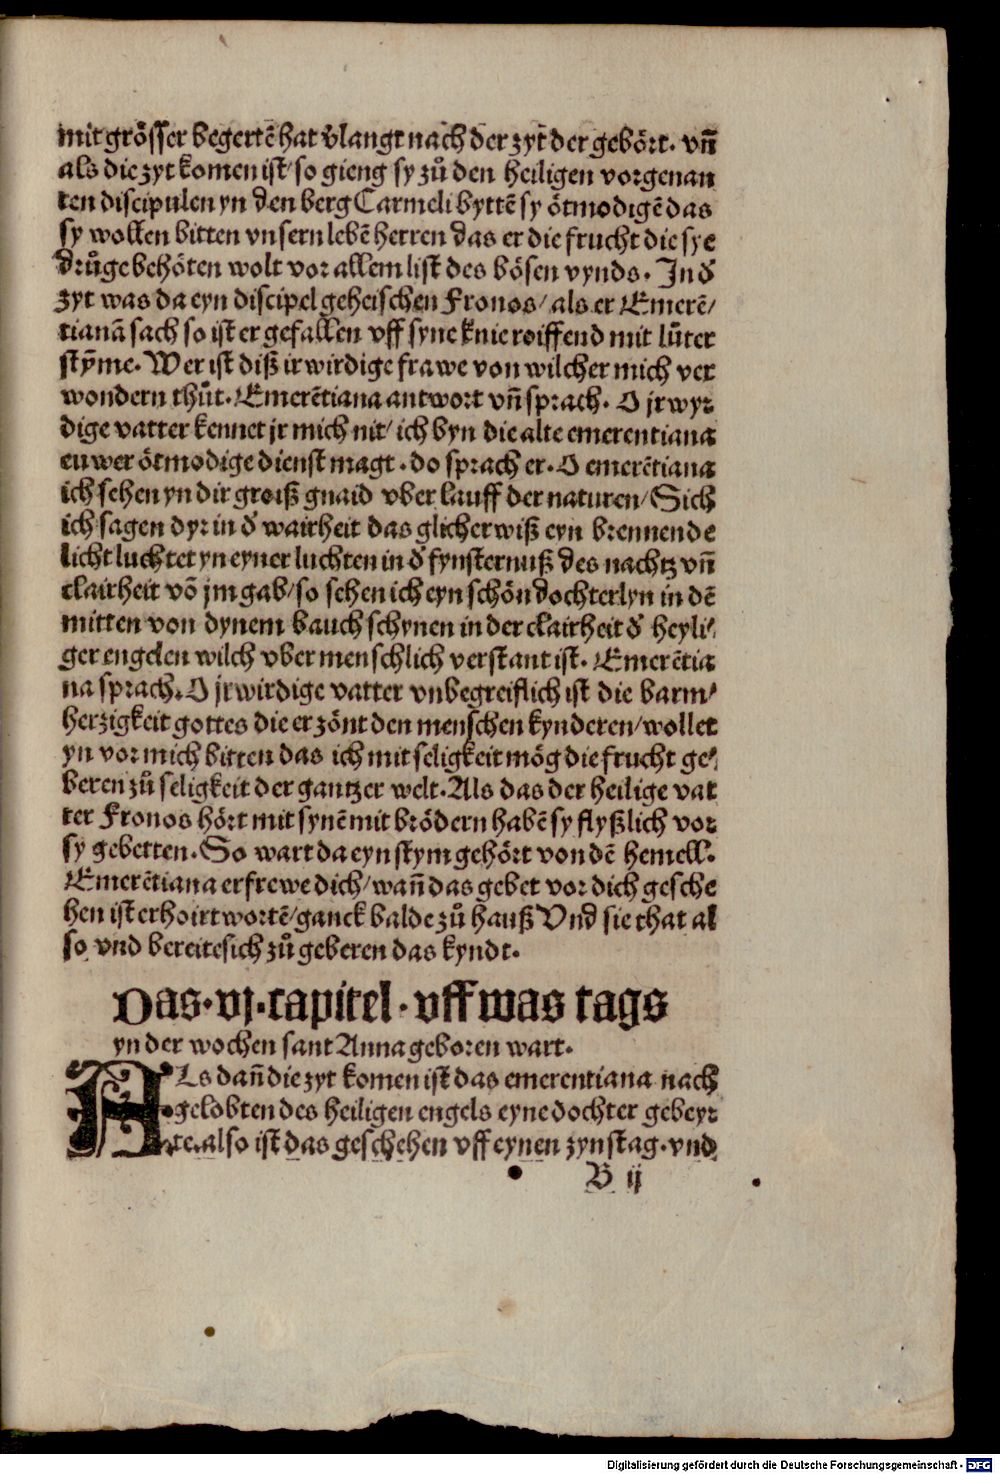 mit grösser begertē hat v̄langt nach der zyt der gebört. vñ
als die zyt komen ist/ so gieng sy zů den heiligen vorgenan
ten discipulen yn den berg Carmeli byttē sy ötmodigē das
sy wollen bitten vnsern lebē herren das er die frucht die sye
drůge behöten wolt vor allem list des bösen vynds. In d̕
zyt was da eyn discipel geheischen Fronos/ als er Emerē/
tianā sach so ist er gefallen vff syne knie roiffend mit lůter
stȳme. Wer ist diß ir wirdige frawe von wilcher mich ver
wondern thůt. Emerētiana antwort vñ sprach. O jr wyr
dige vatter kennet jr mich nit/ ich byn die alte emerentiana
euwer ötmodige dienst magt. do sprach er. O emerētiana
ich sehen yn dir groiß gnaid vber lauff der naturen/ Sich
ich sagen dyr in d̕ wairheit das glicherwiß eyn brennende
licht luchtet yn eyner luchten in d̕ fynsternuß des nachtz vñ
clairheit vō jm gab/ so sehen ich eyn schön dochterlyn in dē
mitten von dynem bauch schynen in der clairheit d̕ heyli/
ger engelen wilch vber menschlich verstant ist. Emerētia
na sprach. O jr wirdige vatter vnbegreiflich ist die barm/
herzigkeit gottes die er zönt den menschen kynderen/ wollet
yn vor mich bitten das ich mit seligkeit mög die frucht ge/
beren zů seligkeit der gantzer welt. Als das der heilige vat
ter Fronos hört mit synē mit brödern habē sy flyßlich vor
sy gebetten. So wart da eyn stym gehört von dē hemell.
Emerētiana erfrewe dich/ wañ das gebet vor dich gesche
hen ist erhoirt wortē/ ganck balde zů hauß Vnd sie that al
so vnd bereite sich zů geberen das kyndt.
Das. vj. capitel. vff was tags
yn der wochen sant Anna geboren wart.
ALs dañ die zyt komen ist das emerentiana nach
gelobten des heiligen engels eyne dochter gebeyr
te. also ist das geschehen vff eynen zynstag. vnd
B ij
Digitalisierung gefördert durch die Deutsche Forschungsgemeinschaft - DFG